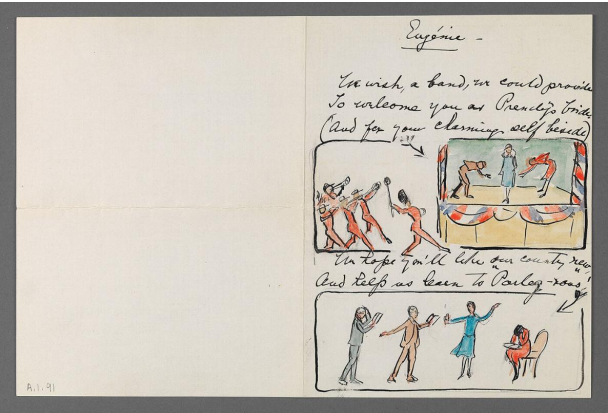 Eugénie -
We wish, a band, we could provide
To welcome you as Prendy's bride
(And for your charming self beside)
We hope you'll like our country new,
And help us learn to "Parlez-vous"!
A.1.91